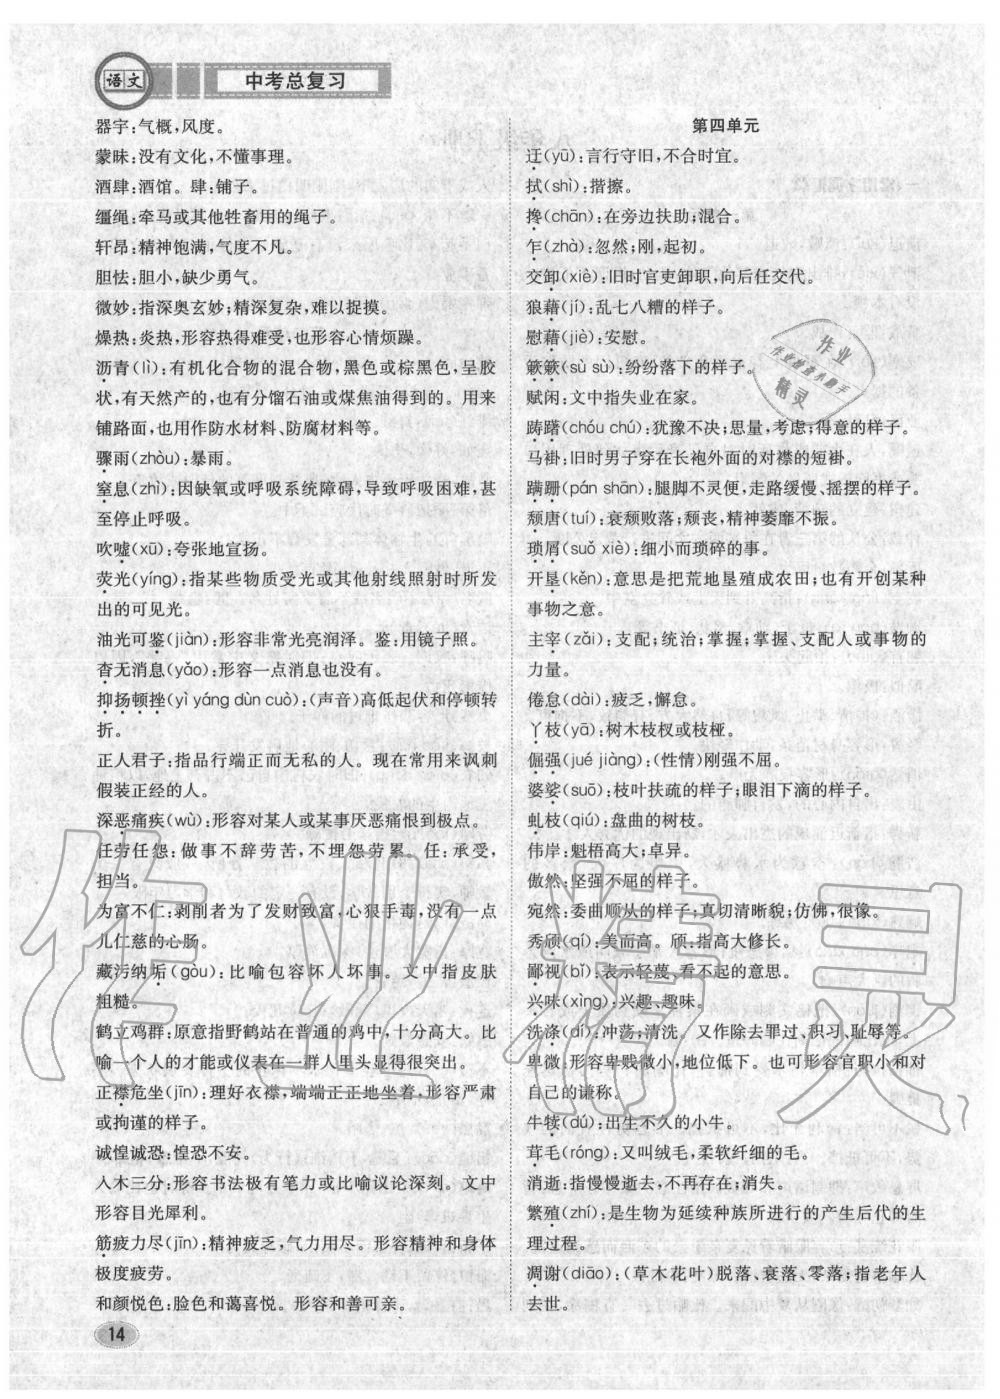 语文
中考总复习
器宇:气概,风度。
蒙昧:没有文化,不懂事理。
酒肆:酒馆。肆:铺子。
缰绳:牵马或其他牲畜用的绳子。
轩昂:精神饱满,气度不凡。
胆怯:胆小,缺少勇气。
微妙:指深奥玄妙;精深复杂,难以捉摸。
燥热:炎热,形容热得难受,也形容心情烦躁。
沥青(lì):有机化合物的混合物,黑色或棕黑色,呈胶
状,有天然产的,也有分馏石油或煤焦油得到的。用来
铺路面,也用作防水材料、防腐材料等。
骤雨(zhòu):暴雨。
窒息(zhì):因缺氧或呼吸系统障碍,导致呼吸困难,甚
至停止呼吸。
吹嘘(xū):夸张地宣扬。
荧光(yíng):指某些物质受光或其他射线照射时所发
出的可见光。
油光可鉴(jiàn):形容非常光亮润泽。鉴:用镜子照。
杳无消息(yǎo):形容一点消息也没有。
抑扬顿挫(yì yáng dùn cuò):(声音)高低起伏和停顿转
折。
正人君子:指品行端正而无私的人。现在常用来讽刺
假装正经的人。
深恶痛疾(wù):形容对某人或某事厌恶痛恨到极点。
任劳任怨:做事不辞劳苦,不埋怨劳累。任:承受,
担当。
为富不仁:剥削者为了发财致富,心狠手毒,没有一点
儿仁慈的心肠。
藏污纳垢(gòu):比喻包容坏人坏事。文中指皮肤
粗糙。
鹤立鸡群:原意指野鹤站在普通的鸡中,十分高大。比
喻一个人的才能或仪表在一群人里头显得很突出。
正襟危坐(jīn):理好衣襟,端端正正地坐着,形容严肃
或拘谨的样子。
诚惶诚恐:惶恐不安。
入木三分:形容书法极有笔力或比喻议论深刻。文中
形容目光犀利。
筋疲力尽(jīn):精神疲乏,气力用尽。形容精神和身体
极度疲劳。
和颜悦色:脸色和蔼喜悦。形容和善可亲。
14
第四单元
迂(yū):言行守旧,不合时宜。
拭(shì):揩擦。
搀(chān):在旁边扶助;混合。
乍(zhà):忽然;刚,起初。
交卸(xiè):旧时官吏卸职,向后任交代。
狼藉(jí):乱七八糟的样子。
慰藉(jiè):安慰。
簌簌(sù sù):纷纷落下的样子。
赋闲:文中指失业在家。
踌躇(chóu chú):犹豫不决;思量,考虑;得意的样子。
马褂:旧时男子穿在长袍外面的对襟的短褂。
蹒跚(pán shān):腿脚不灵便,走路缓慢、摇摆的样子。
颓唐(tuí):衰颓败落;颓丧,精神萎靡不振。
琐屑(suǒ xiè):细小而琐碎的事。
开垦(kěn):意思是把荒地垦殖成农田;也有开创某种
事物之意。
主宰(zǎi):支配;统治;掌握;掌握、支配人或事物的
力量。
倦怠(dài):疲乏,懈怠。
丫枝(yā):树木枝杈或枝桠。
倔强(jué jiàng):(性情)刚强不屈。
婆娑(suō):枝叶扶疏的样子;眼泪下滴的样子。
虬枝(qiú):盘曲的树枝。
伟岸:魁梧高大;卓异。
傲然:坚强不屈的样子。
宛然:委曲顺从的样子;真切清晰貌;仿佛,很像。
秀颀(qí):美而高。颀:指高大修长。
鄙视(bǐ):表示轻蔑、看不起的意思。
兴味(xìng):兴趣、趣味。
洗涤(dí):冲荡;清洗。又作除去罪过、积习、耻辱等。
卑微:形容卑贱微小,地位低下。也可形容官职小和对
自己的谦称。
牛犊(dú):出生不久的小牛。
茸毛(róng):又叫绒毛,柔软纤细的毛。
消逝:指慢慢逝去,不再存在;消失。
繁殖(zhí):是生物为延续种族所进行的产生后代的生
理过程。
凋谢(diāo):(草木花叶)脱落、衰落、零落;指老年人
去世。
作业
作业检查小助手
精灵
作业精灵